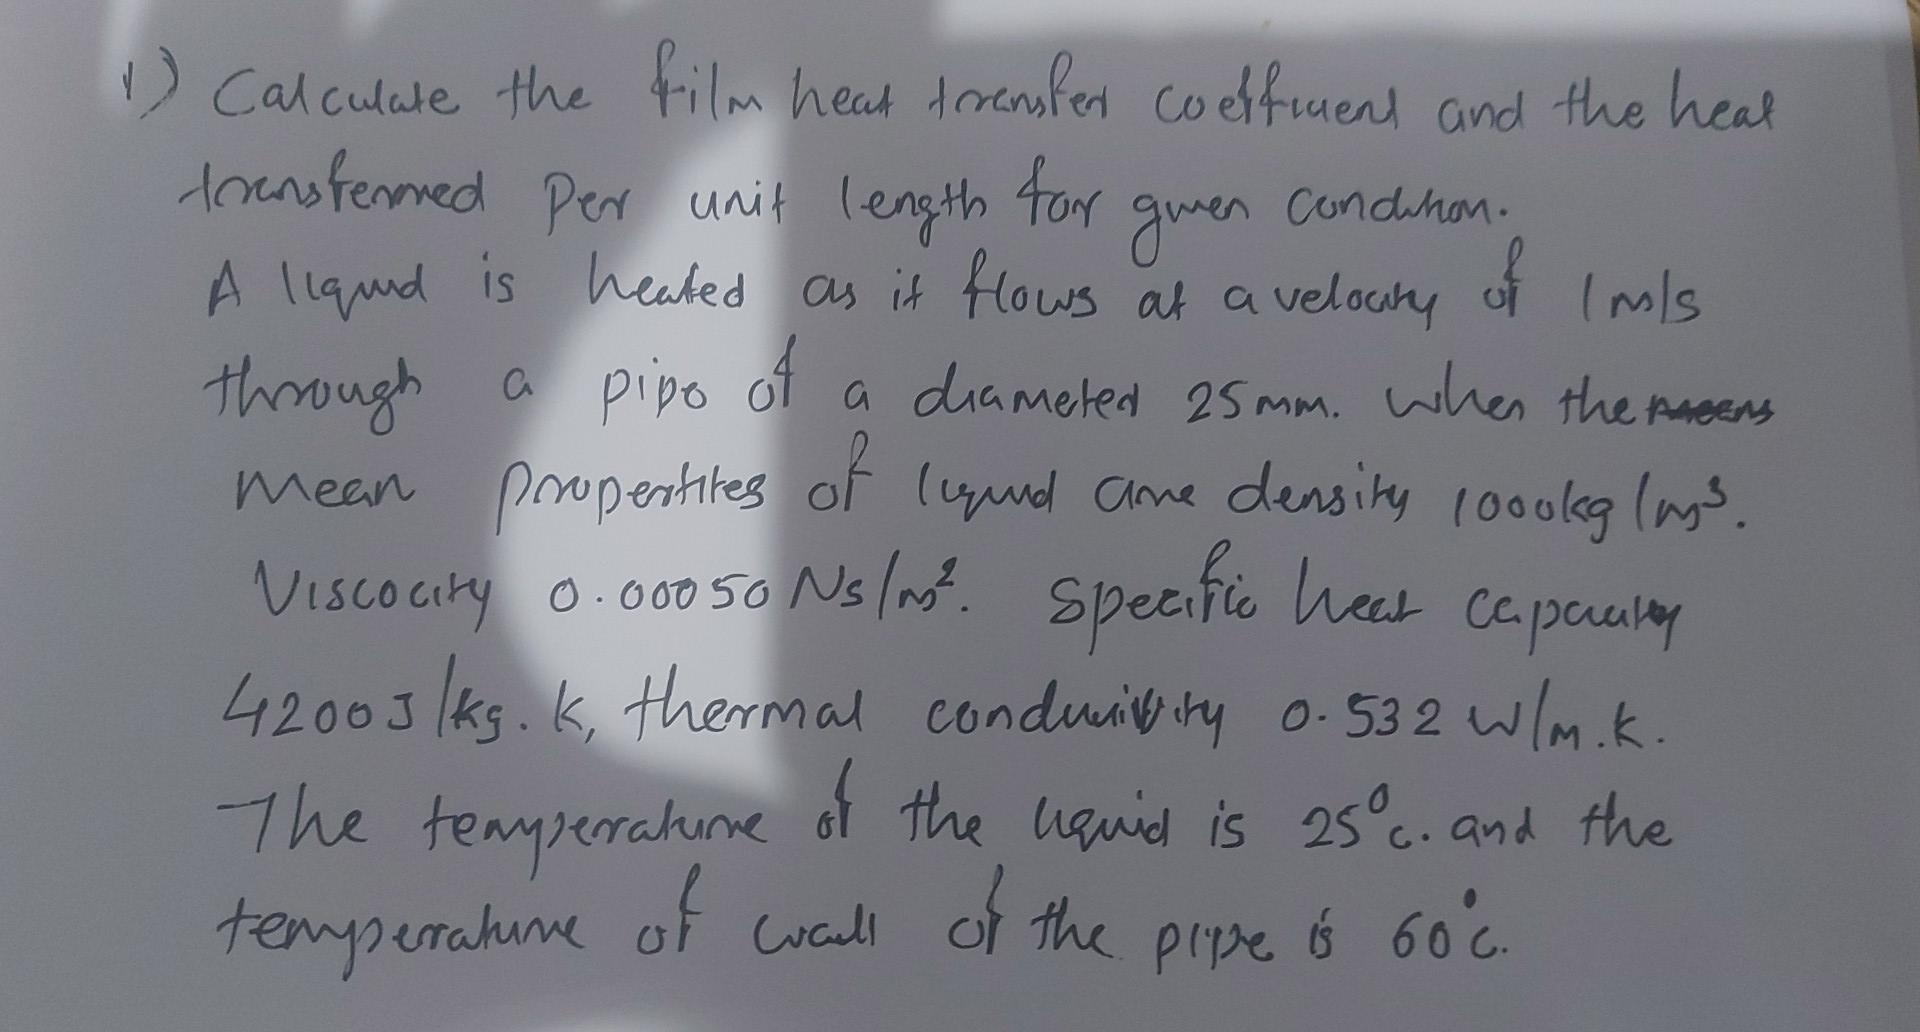 1) Calculate the film heat transfer coefficient and the heat
transferred per unit length for given condition.
A liquid is heated as it flows at a velocity of 1 m/s
through a pipe of a diameter 25 mm. when the
mean properties of liquid are density 1000kg/m³.
Viscocity 0.00050 Ns/m². Specific heat capacity
4200J/kg.k, thermal conductivity 0.532 W/m.k.
The temperature of the liquid is 25°c. and the
temperature of wall of the pipe is 60°c.